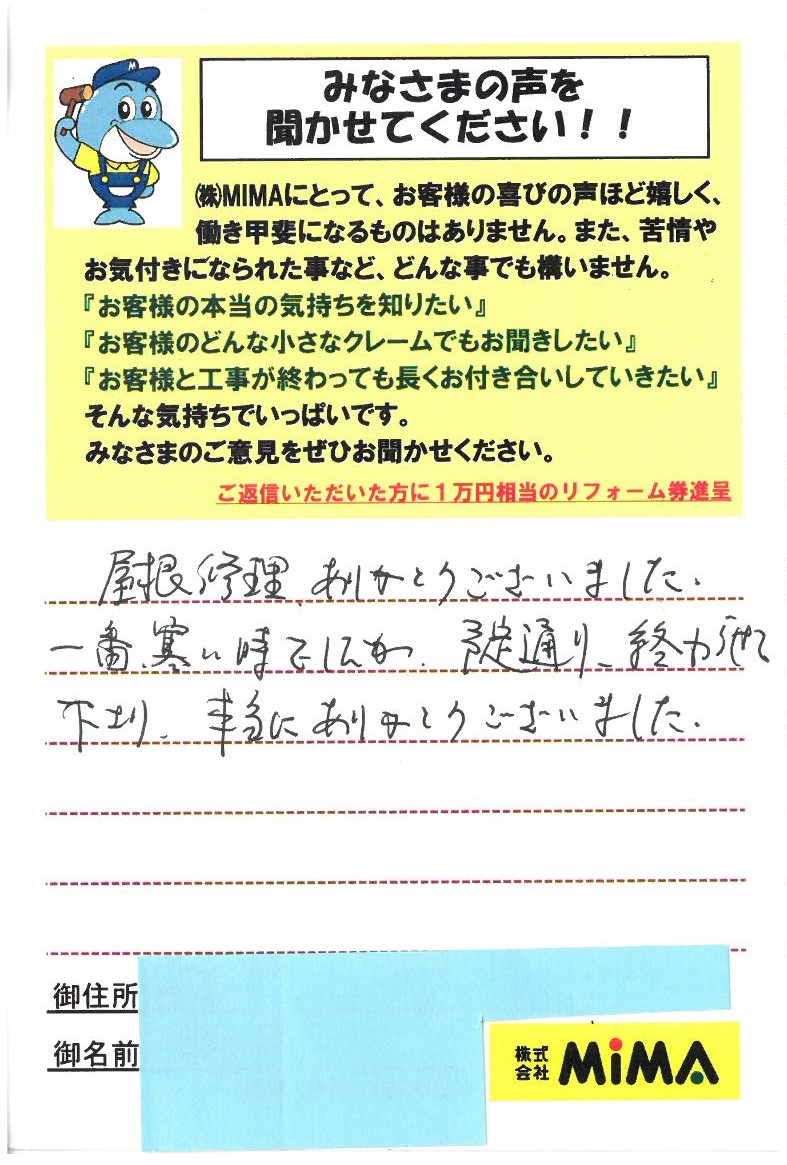 みなさまの声を
聞かせてください！！
㈱MIMAにとって、お客様の喜びの声ほど嬉しく、
働き甲斐になるものはありません。また、苦情や
お気付きになられた事など、どんな事でも構いません。
『お客様の本当の気持ちを知りたい』
『お客様のどんな小さなクレームでもお聞きしたい』
『お客様と工事が終わっても長くお付き合いしていきたい』
そんな気持ちでいっぱいです。
みなさまのご意見をぜひお聞かせください。
ご返信いただいた方に１万円相当のリフォーム券進呈
屋根修理、ありがとうございました。
一番、寒い時でしたが、予定通り、終わらせて
下さり、本当にありがとうございました。
御住所
御名前
株式会社 MiMA